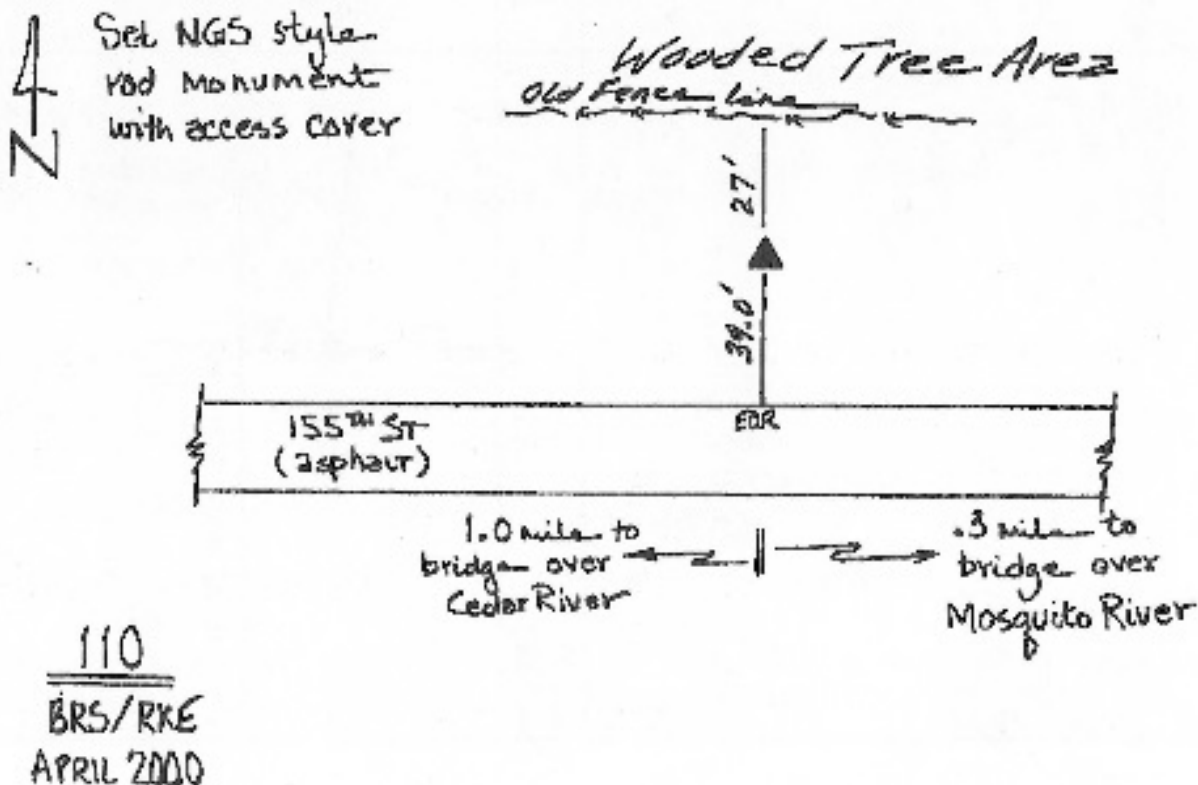 Set NGS style
rod monument
with access cover
N
Wooded Tree Area
Old Fence line
27'
39.0'
EOR
155TH ST
(asphalt)
1.0 mile to
bridge over
Cedar River
.3 mile to
bridge over
Mosquito River
110
BRS/RKE
APRIL 2000